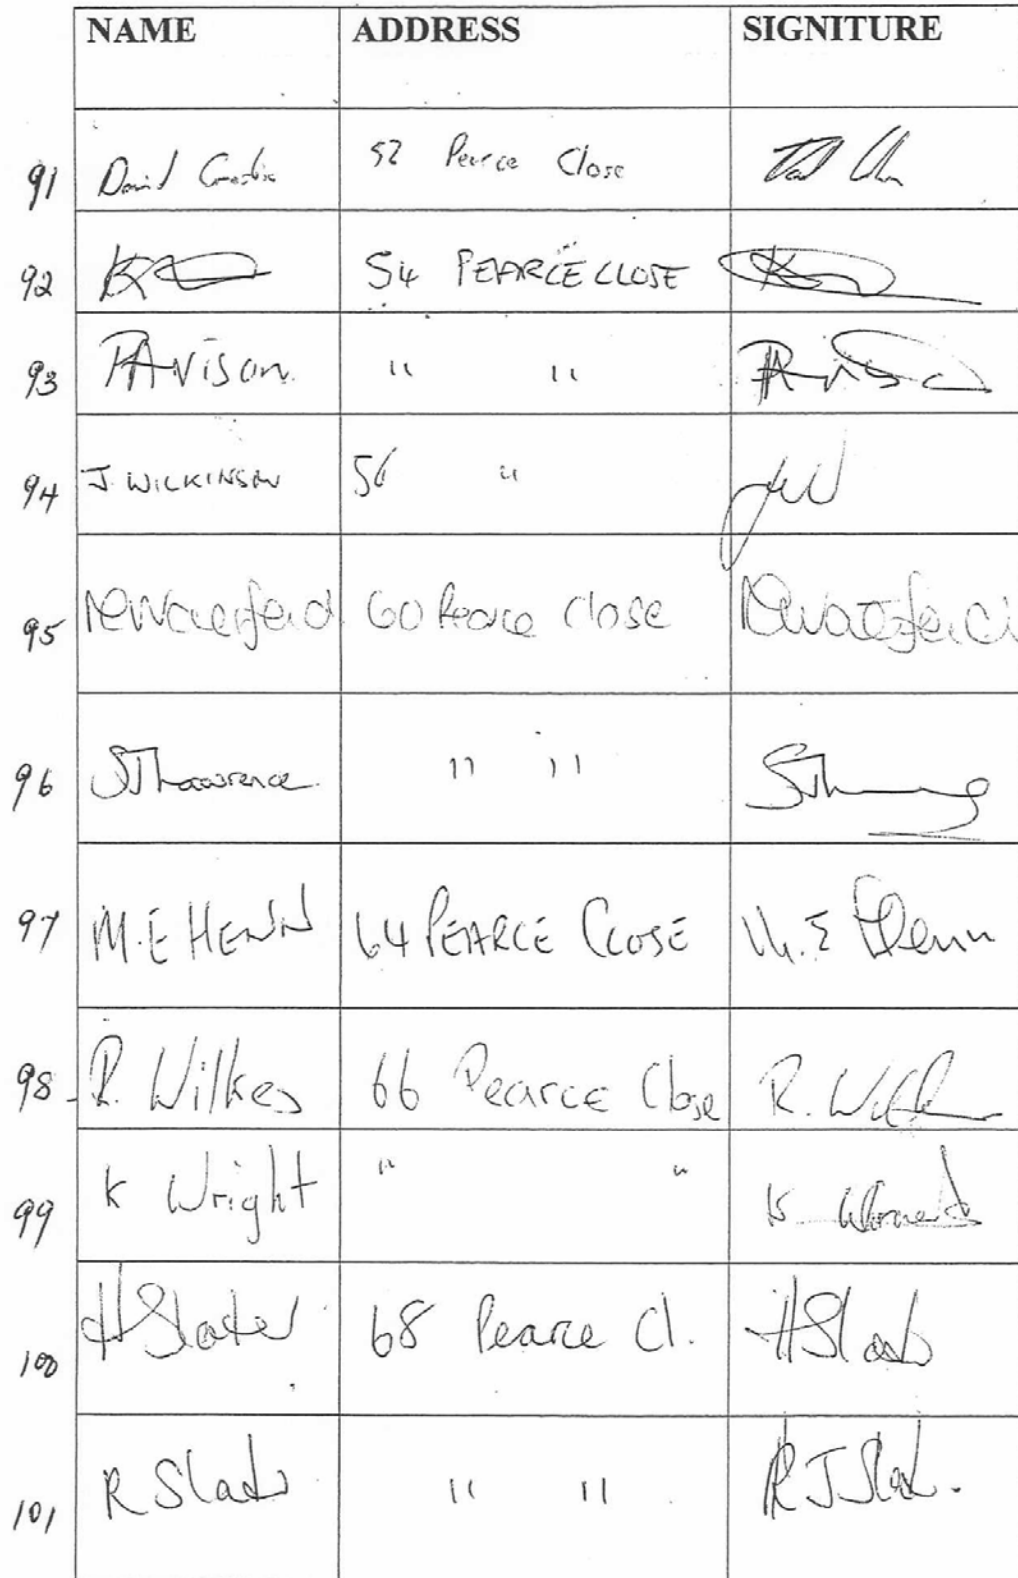 NAME ADDRESS SIGNITURE
91 David 52 Pearce Close
92 54 PEARCE CLOSE
93 PAVISON. " "
94 J. WILKINSON 56 "
95 60 Pearce Close
96 STLawrence. " "
97 M.E HENN 64 PEARCE CLOSE M.E Henn
98 R. Wilkes 66 Pearce Close R.
99 K Wright " " K
100 H Slater 68 Pearce Cl. H Slater
101 R Slater " " R J Slater.